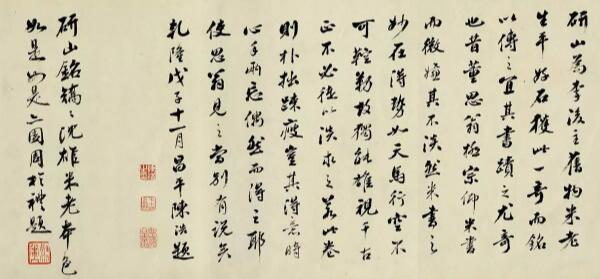 研山為李後主舊物米老
生平好石獲此一奇而銘
以傳之宜其書蹟之尤奇
也昔董思翁極宗仰米書
而微嫌其不淡然米書之
妙在得勢如天馬行空不
可鞚勒故獨能雄視千古
正不必徒以淡求之若此卷
則朴拙疎瘦豈其得意時
心手兩忘偶然而得之耶
使思翁見之當別有說矣
乾隆戊子十一月昌平陳浩題
研山銘沈雄米老本色
如是如是亦園周於禮題